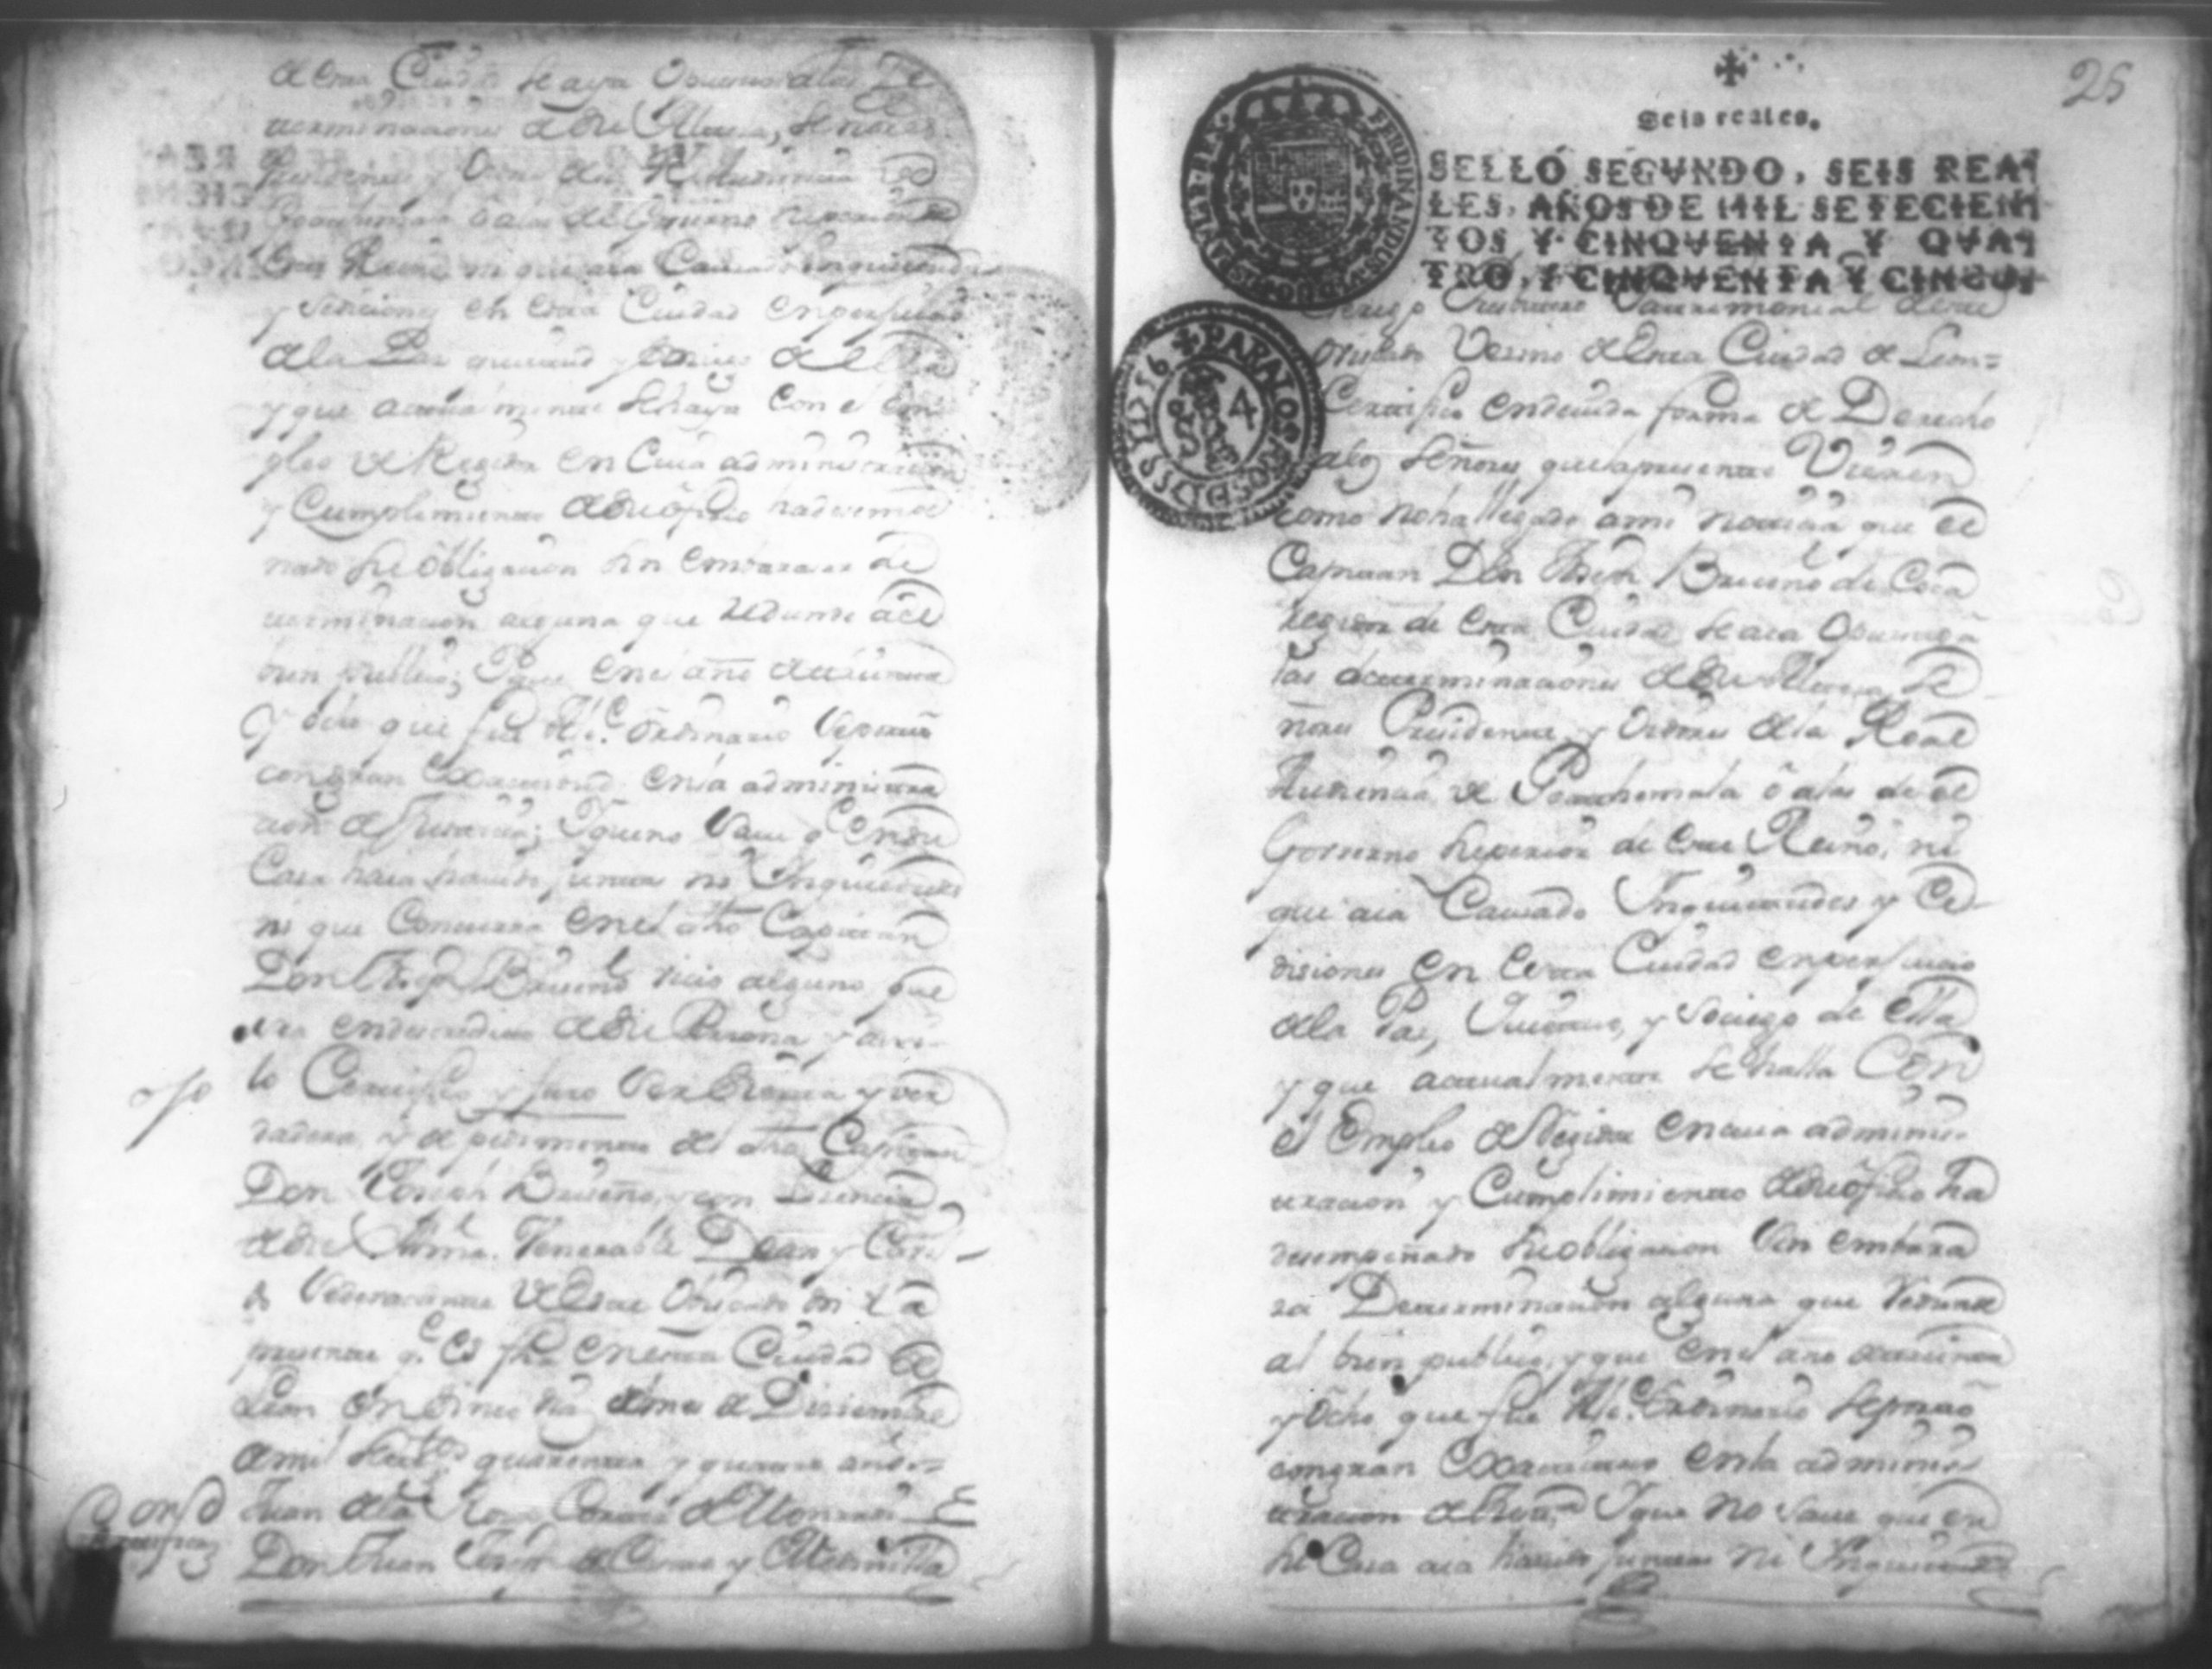 de esta Ciudad se aya opuesto a las De
terminaciones de Su Alteza, Señores
Precidente y Oidores de la R. Audiencia de
Goathemala o a las de el Govierno superior de
este Reino ni que aia Causado Inquietudes
y sediciones en esta Ciudad en perjuicio
de la Paz quietud y sosiego de ella
y que actualmente se haya con el em
pleo de Regidor en Cuia administracion
y Cumplimiento de su oficio ha desempe
nado su obligacion sin embarazar de
terminacion alguna que redunde a el
bien publico; Y que en el año de treinta
y ocho que fue Alc.e ordinario se porto
con gran exactitud en la administra
cion de Justicia; Y que no save q.e en su
Casa haia havido juntas ni Inquietudes
ni que Concurra en el dho Capitan
Don Joseph Briceño vicio alguno que
sea en descredito de su Persona y assi
lo Certifico y juro ser cierta y ver
dadera, y de pedimento del dho Capitan
Don Joseph Briseño, y con Lisencia
de su Venerable Dean y Cavil
do Sedevacante de este Obispado di la
presente q.e es fha en esta Ciudad de
Leon en sinco dias del mes de Diziembre
de mil setectos quarenta y quatro años=
Juan de la Rosa
Don Juan Joseph de y
26
Seis reales.
SELLO SEGVNDO, SEIS REA
LES, AÑOS DE MIL SETECIEN
TOS Y CINQVENTA Y QVA
TRO, Y CINQVENTA Y CINCO.
Presbitero Patrimonial de este
Obispado Vesino de esta Ciudad de Leon=
Certifico en devida forma de Derecho
a los Señores que la presente Vieren
como no ha llegado a mi noticia que el
Capitan Don Joseph Briceño de Coca
Regidor de esta Ciudad se aia opuesto a
las determinaciones de Su Alteza Se
ñores Precidente y Oidores de la Real
Audiencia de Goathemala o a las de el
Govierno Superior de este Reino, ni
que aia Causado Inquietudes y Ce
disiones en esta Ciudad en perjuicio
de la Paz, Quietud, y Sosiego de ella
y que actualmente se halla Con
el Empleo de Regidor en cuia adminis
tracion y Cumplimiento de su oficio ha
desempeñado su obligacion Sin embara
zar Determinacion alguna que redunde
al bien publico, y que en el año de treinta
y ocho que fue Alc.e Ordinario se porto
con gran Exactitud en la adminis
tracion de Justa Y que no save que en
su Casa aia havido juntas ni Inquietudes